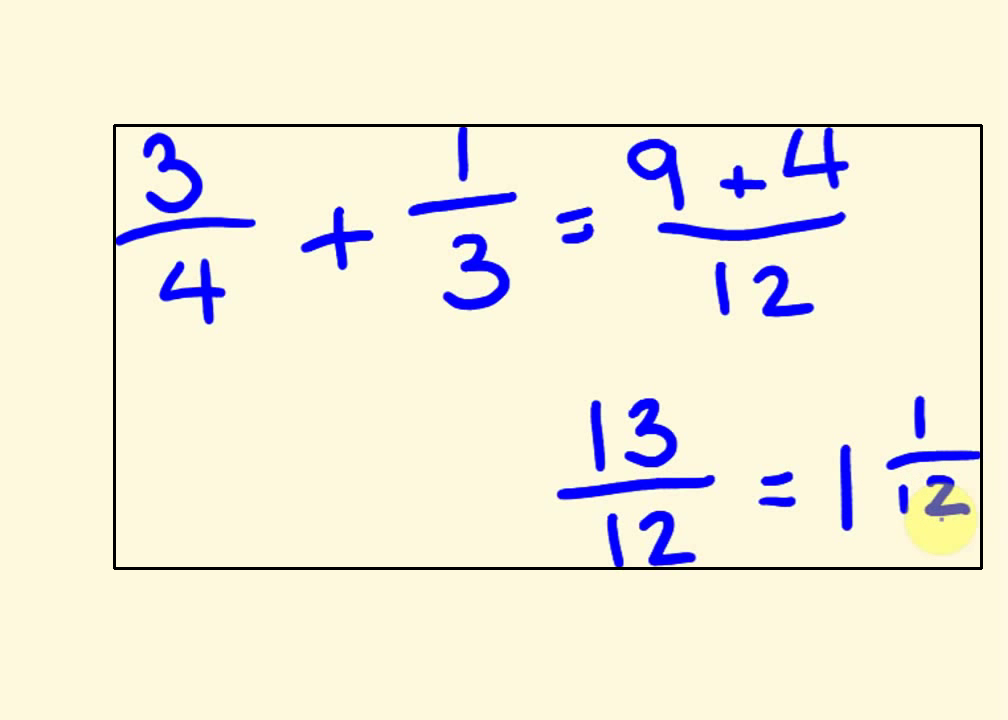 3/4 + 1/3 = 9 + 4/12
13/12 = 1 1/12